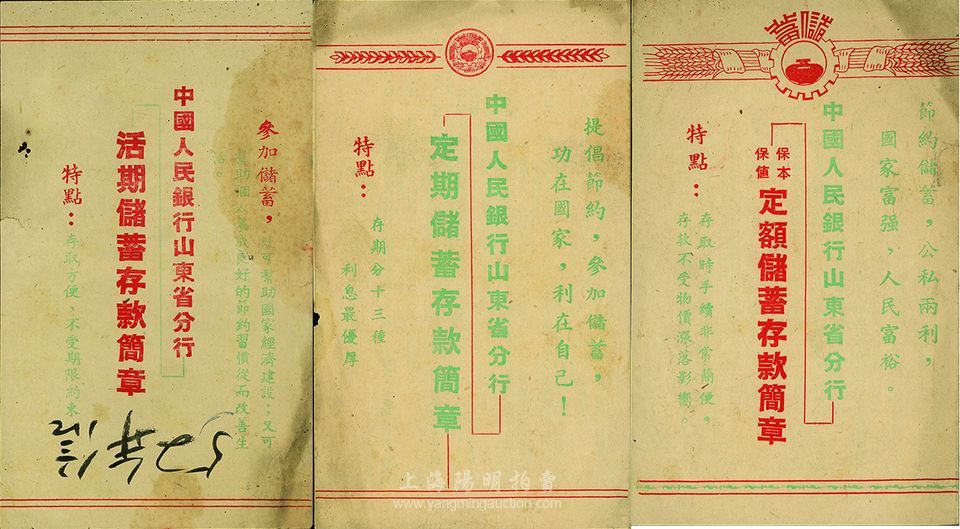 參加儲蓄，既可幫助國家經濟建設；又可
幫助個人養成良好的節約習慣從而改善生
活。
中國人民銀行山東省分行
活期儲蓄存款簡章
特點：存取方便，不受期限約束
52年
提倡節約，參加儲蓄，
功在國家，利在自己！
中國人民銀行山東省分行
定期儲蓄存款簡章
特點：
存期分十三種
利息最優厚
儲蓄
節約儲蓄，公私兩利，
國家富强，人民富裕。
中國人民銀行山東省分行
保本
保值
定額儲蓄存款簡章
特點：
存取時手續非常簡便，
存款不受物價漲落影響
上海陽明拍賣
www.yangmingauction.com